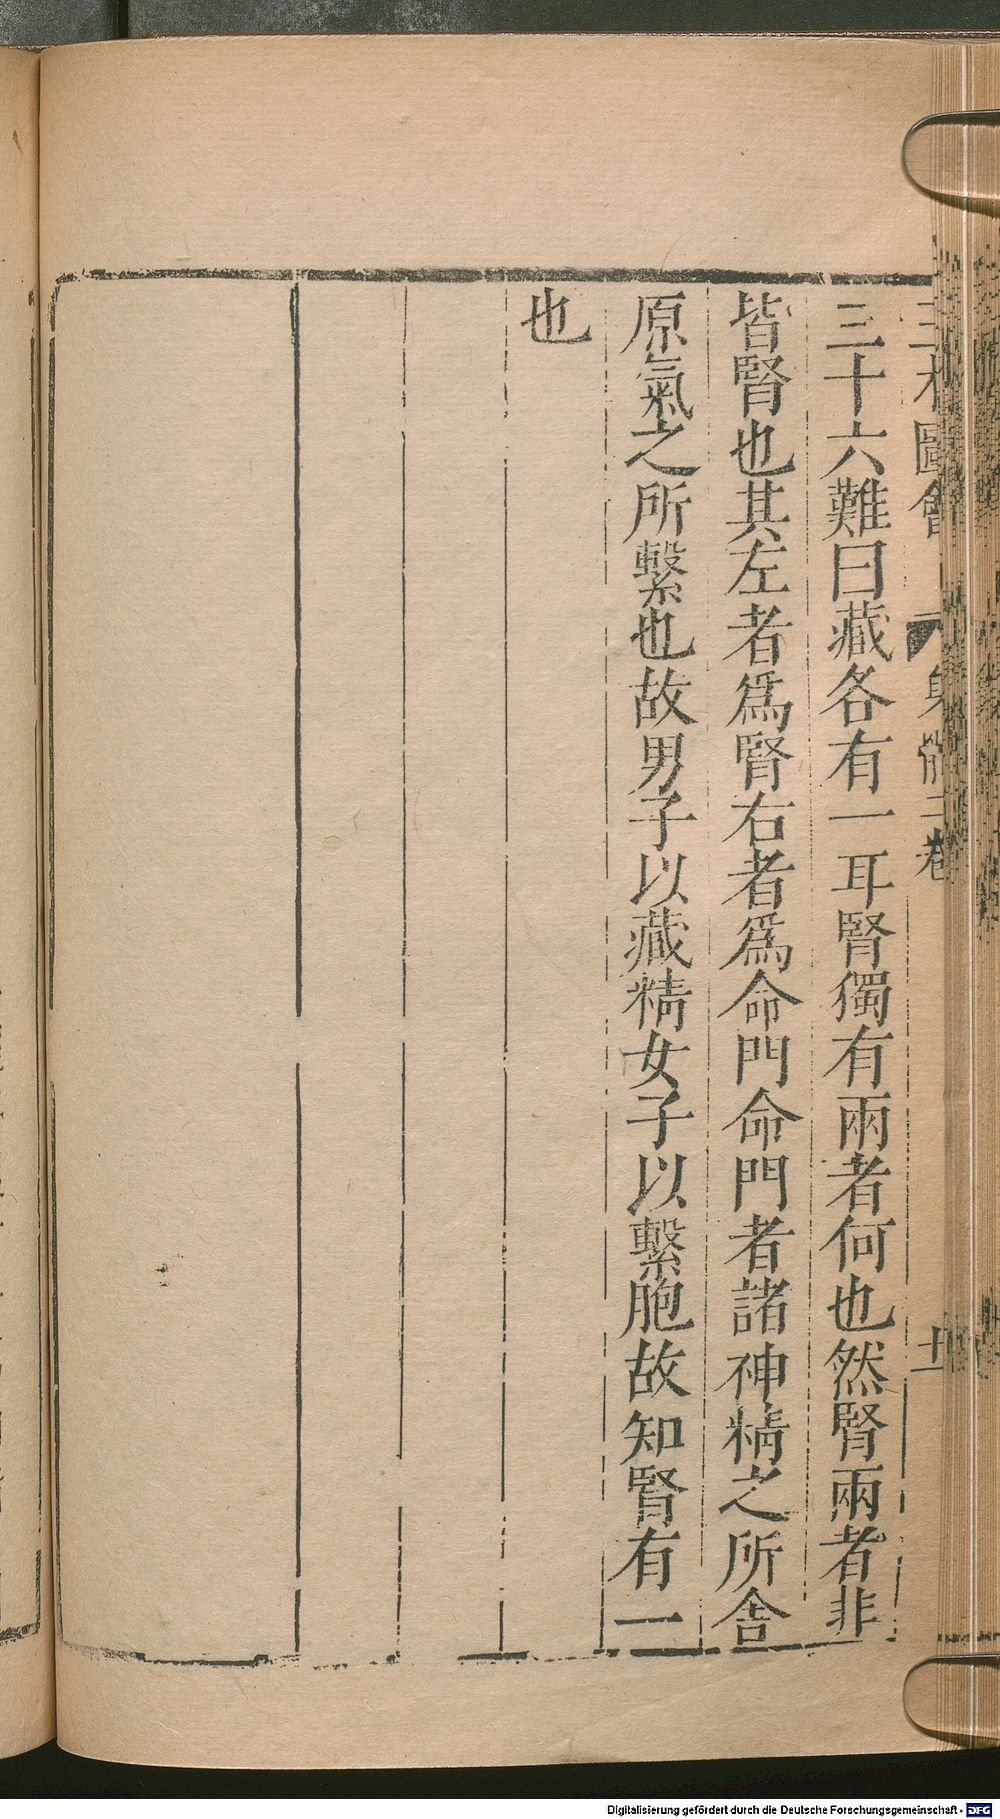 三才圖會
身體二卷
十一
三十六難曰藏各有一耳腎獨有兩者何也然腎兩者非
皆腎也其左者爲腎右者爲命門命門者諸神精之所舍
原氣之所繫也故男子以藏精女子以繫胞故知腎有一
也
Digitalisierung gefördert durch die Deutsche Forschungsgemeinschaft - DFG